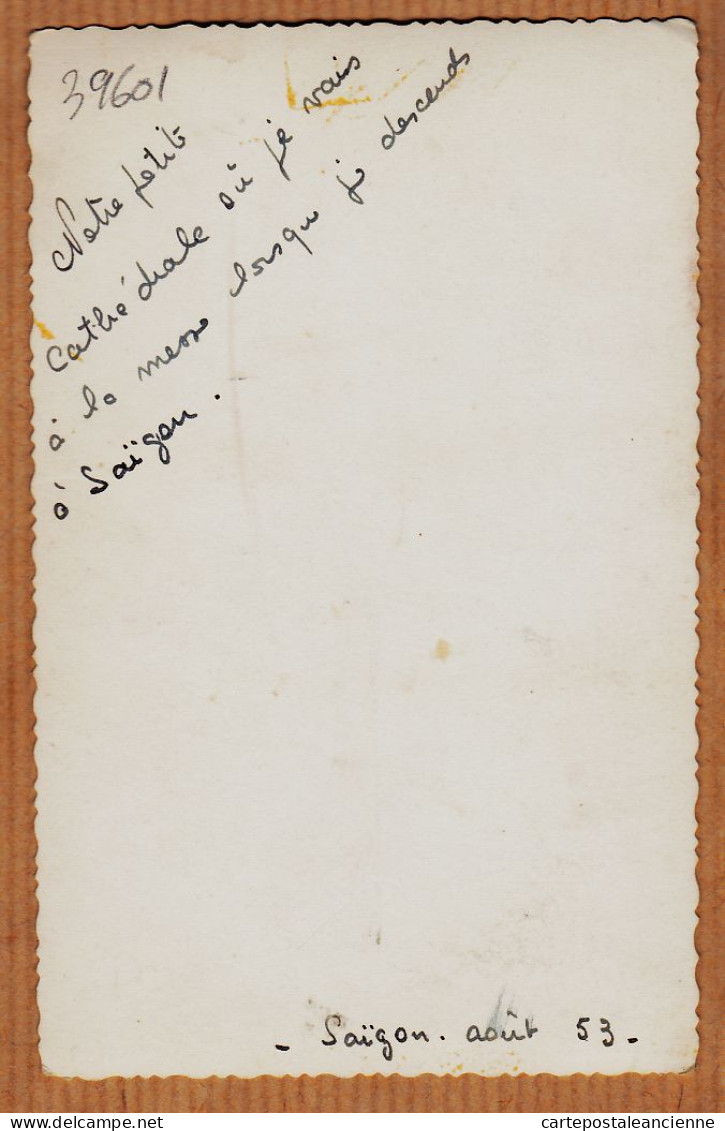 39601
Notre petite
Cathédrale où je vais
à la messe lorsque je descends
à Saïgon.
- Saïgon. août 53 -
delcampe.net
cartepostaleancienne